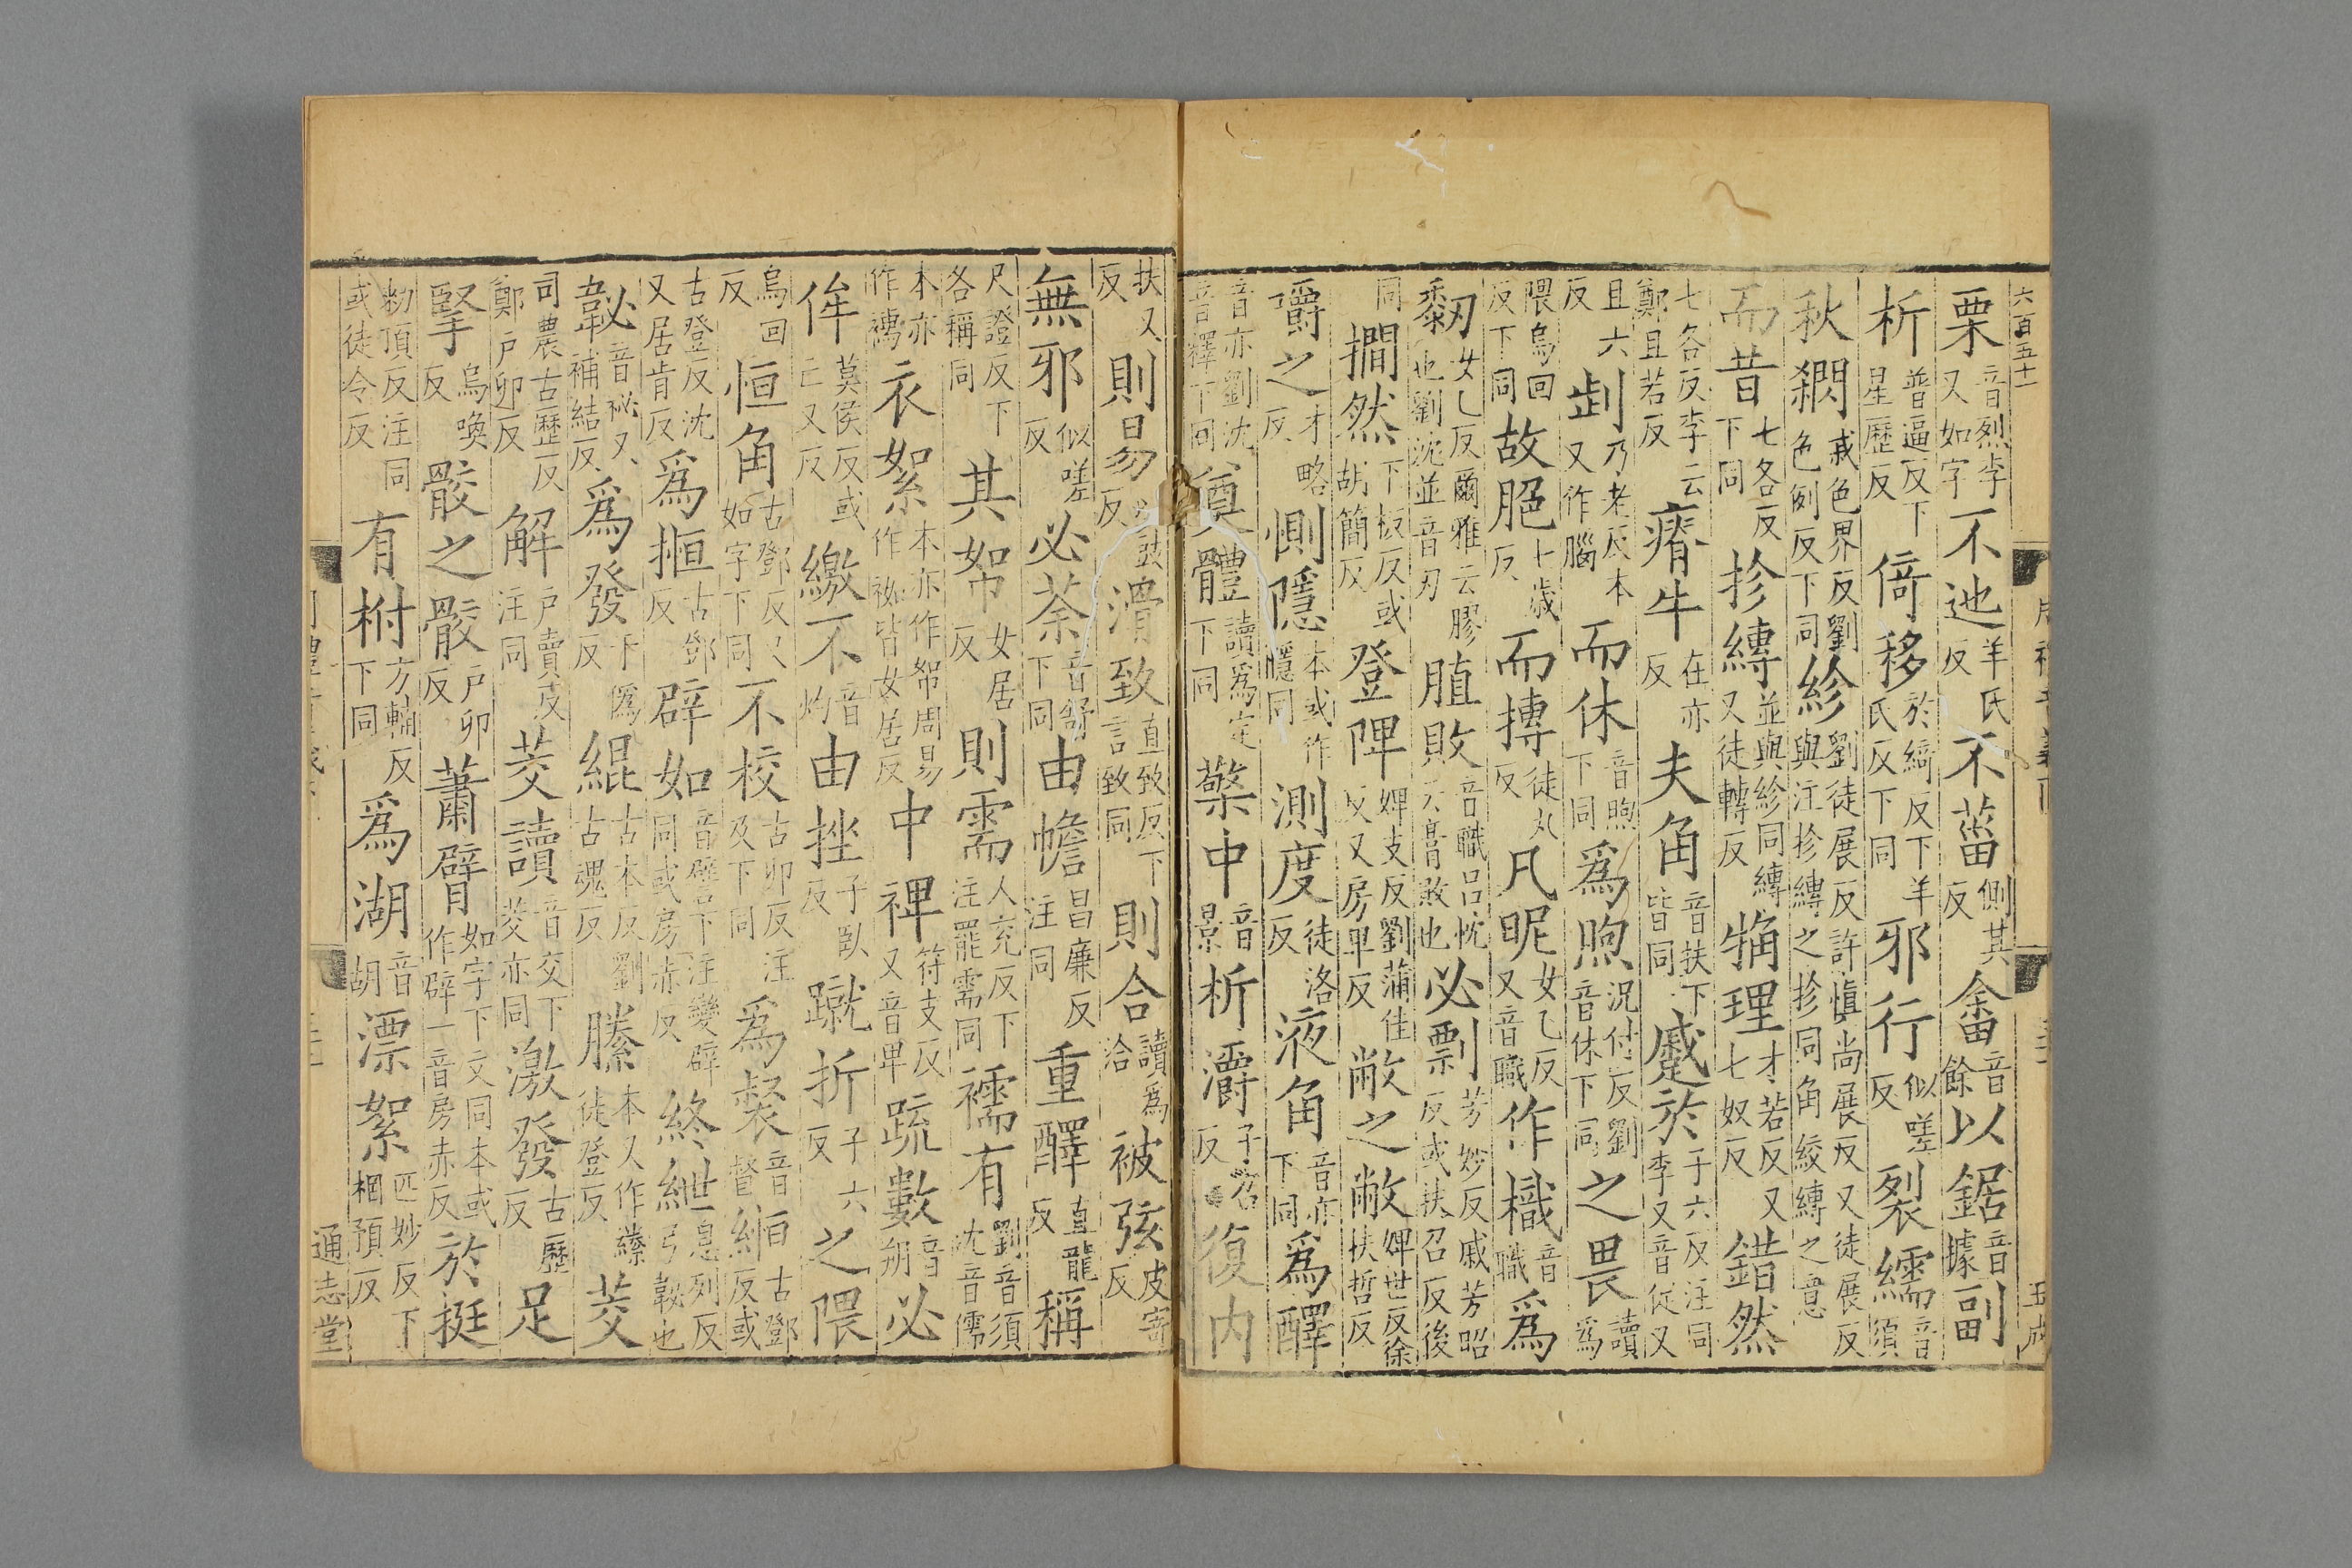 六百五十一
栗音烈李又如字不迆羊氏反不菑側其反畬音餘以鋸音據副
析普逼反下星歷反倚移於綺反下羊氏反下同邪行似嗟反裂繻音須
秋閷戚色界反劉色例反下同紾劉徒展反許慎尚展反又徒展反與注抮縳之抮同角絞縳之意
而昔七各反下同抮縳並與紾同縳又徒轉反觕理才若反又七奴反錯然
七各反李云鄭且若反瘠牛在亦反夫角音扶下皆同蹙於子六反注同李又音促又
且六反𠜶乃老反本又作腦而休音煦下同為煦況付反劉音休下同之畏讀為
隈烏回反下同故脃七歲反而摶徒丸反凡昵女乙反又音職作樴音職為
䵒女乙反爾雅云膠也劉沈並音刃脜敗音職呂忱云膏敗也必剽芳妙反戚芳昭反或扶召反後
同撊然下板反或胡簡反登陴婢支反劉蒲佳反又房卑反敝之敝婢世反徐扶哲反
㶣之才略反惻隱本或作㥯同測度徒洛反液角音亦下同為醳
音亦劉沈音釋下同奠體讀為定下同檠中音景析灂子召反復内
王成
扶又反則易以豉反滑致直致反下言致同則合讀為洽被弦皮寄反
無邪似嗟反必荼音舒下同由幨昌廉反注同重醳直龍反稱
尺證反下各稱同其帤女居反則需人兖反下注罷需同襦有劉音須沈音儒
本亦作𥿮衣絮本亦作帤周易作袽皆女居反中裨符支反又音卑疏數音朔必
侔莫侯反或亡又反繳不音灼由挫子臥反蹴折子六反之隈
烏回反恒角古鄧反又如字下同不校古卯反注及下同為䙃音督縆古鄧反或
古登反沈又居肯反為揯古鄧反辟如音譬下注變辟同或房赤反終紲息列反弓䪐也
䪐音祕又補結反為發于僞反緄古本反劉古魂反縢本又作縢徒登反茭
司農古歷反鄭戶卯反解戶賣反注同茭讀音交下茭亦同激發古歷反足
掔烏喚反骹之骹戶卯反蕭臂如字下文同本或作辟一音房赤反於挺
勑頂反注同或徒令反有柎方輔反下同為湖音胡漂絮匹妙反下相預反
通志堂